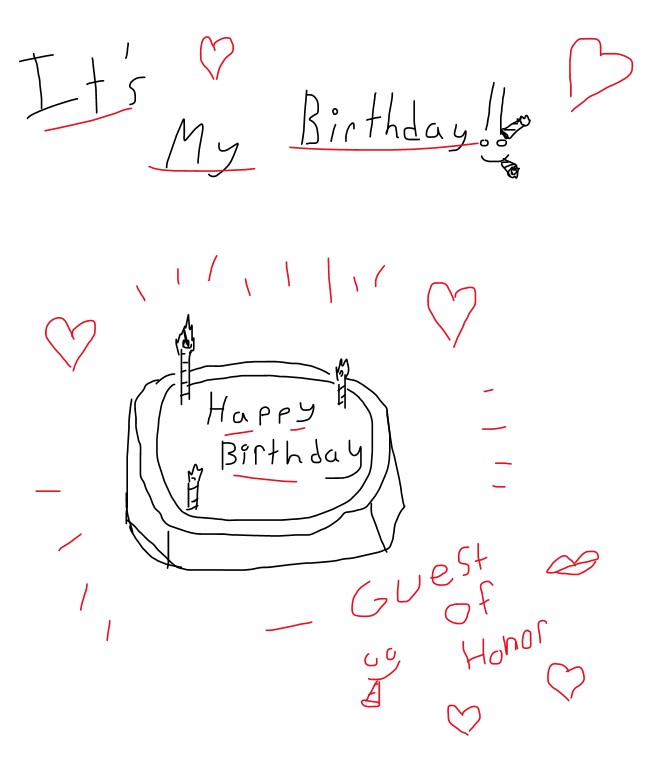 It's
My
Birthday!!
Happy
Birthday
Guest
of
Honor